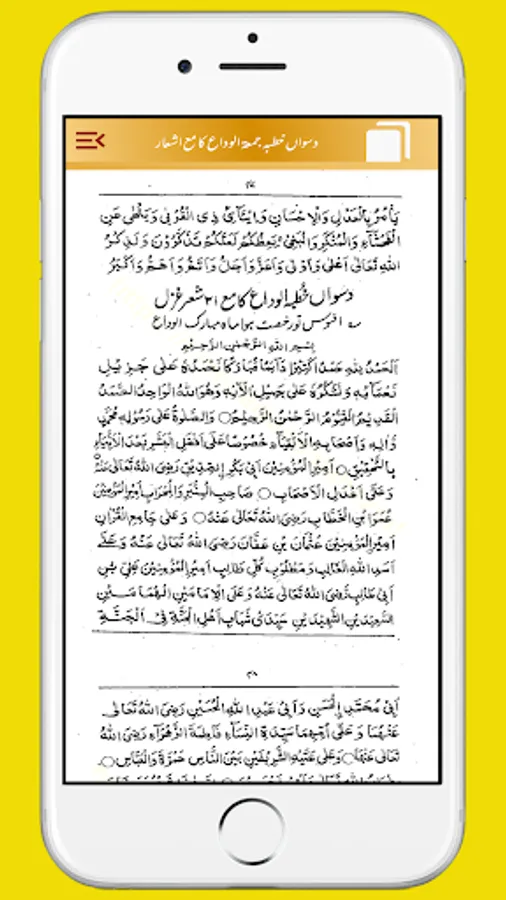 دسواں خطبہ جمعۃ الوداع کا مع اشعار
۴۷
يَأْمُرُ بِالْعَدْلِ وَالْاِحْسَانِ وَاِيْتَآئِ ذِي الْقُرْبٰى وَيَنْهٰى عَنِ
الْفَحْشَآءِ وَالْمُنْكَرِ وَالْبَغْيِ يَعِظُكُمْ لَعَلَّكُمْ تَذَكَّرُوْنَ وَلَذِكْرُ
اللهِ تَعَالٰى اَعْلٰى وَاَوْلٰى وَاَعَزُّ وَاَجَلُّ وَاَتَمُّ وَاَهَمُّ وَاَكْبَرُ
دسواں خطبۂ الوداع کا مع ۲۱ شعر غزل
افسوس تو رخصت ہوا ماہ مبارک الوداع
بِسْمِ اللهِ الرَّحْمٰنِ الرَّحِيْمِ
اَلْحَمْدُ لِلّٰهِ حَمْدًا كَثِيْرًا دَآئِمًا مُّبَارَكًا نَحْمَدُهٗ عَلٰى جَزِيْلِ
نَعْمَآئِهٖ وَنَشْكُرُهٗ عَلٰى جَمِيْلِ اٰلَآئِهٖ وَهُوَ اللهُ الْوَاحِدُ الصَّمَدُ
الْقَدِيْمُ الْقَيُّوْمُ الرَّحْمٰنُ الرَّحِيْمُ ○ وَالصَّلٰوةُ عَلٰى رَسُوْلِهٖ مُحَمَّدٍ
وَّاٰلِهٖ وَاَصْحَابِهِ الْاَتْقِيَآءِ خُصُوْصًا عَلٰى اَفْضَلِ الْبَشَرِ بَعْدَ الْاَنْبِيَآءِ
بِالتَّحْقِيْقِ ○ اَمِيْرِ الْمُؤْمِنِيْنَ اَبِيْ بَكْرِ ۨالصِّدِّيْقِ رَضِيَ اللهُ تَعَالٰى عَنْهُ
وَعَلٰى اَعْدَلِ الْاَصْحَابِ ○ صَاحِبِ الْمِنْبَرِ وَالْمِحْرَابِ اَمِيْرِ الْمُؤْمِنِيْنَ
عُمَرَ ابْنِ الْخَطَّابِ رَضِيَ اللهُ تَعَالٰى عَنْهُ ○ وَعَلٰى جَامِعِ الْقُرْاٰنِ
اَمِيْرِ الْمُؤْمِنِيْنَ عُثْمَانَ بْنِ عَفَّانَ رَضِيَ اللهُ تَعَالٰى عَنْهُ وَعَلٰى
اَسَدِ اللهِ الْغَالِبِ وَمَطْلُوْبِ كُلِّ طَالِبٍ اَمِيْرِ الْمُؤْمِنِيْنَ عَلِيِّ بْنِ
اَبِيْ طَالِبٍ رَضِيَ اللهُ تَعَالٰى عَنْهُ وَعَلَى الْاِمَامَيْنِ الْهُمَامَيْنِ
السَّعِيْدَيْنِ الشَّهِيْدَيْنِ سَيِّدَيْ شَبَابِ اَهْلِ الْجَنَّةِ فِي الْجَنَّةِ
۴۸
اَبِيْ مُحَمَّدِ ۨالْحَسَنِ وَاَبِيْ عَبْدِ اللهِ الْحُسَيْنِ رَضِيَ اللهُ تَعَالٰى
عَنْهُمَا وَعَلٰى اُمِّهِمَا سَيِّدَةِ النِّسَآءِ فَاطِمَةَ الزَّهْرَآءِ رَضِيَ اللهُ
تَعَالٰى عَنْهَا ○ وَعَلٰى عَمَّيْهِ الشَّرِيْفَيْنِ بَيْنَ النَّاسِ حَمْزَةَ وَالْعَبَّاسِ ○